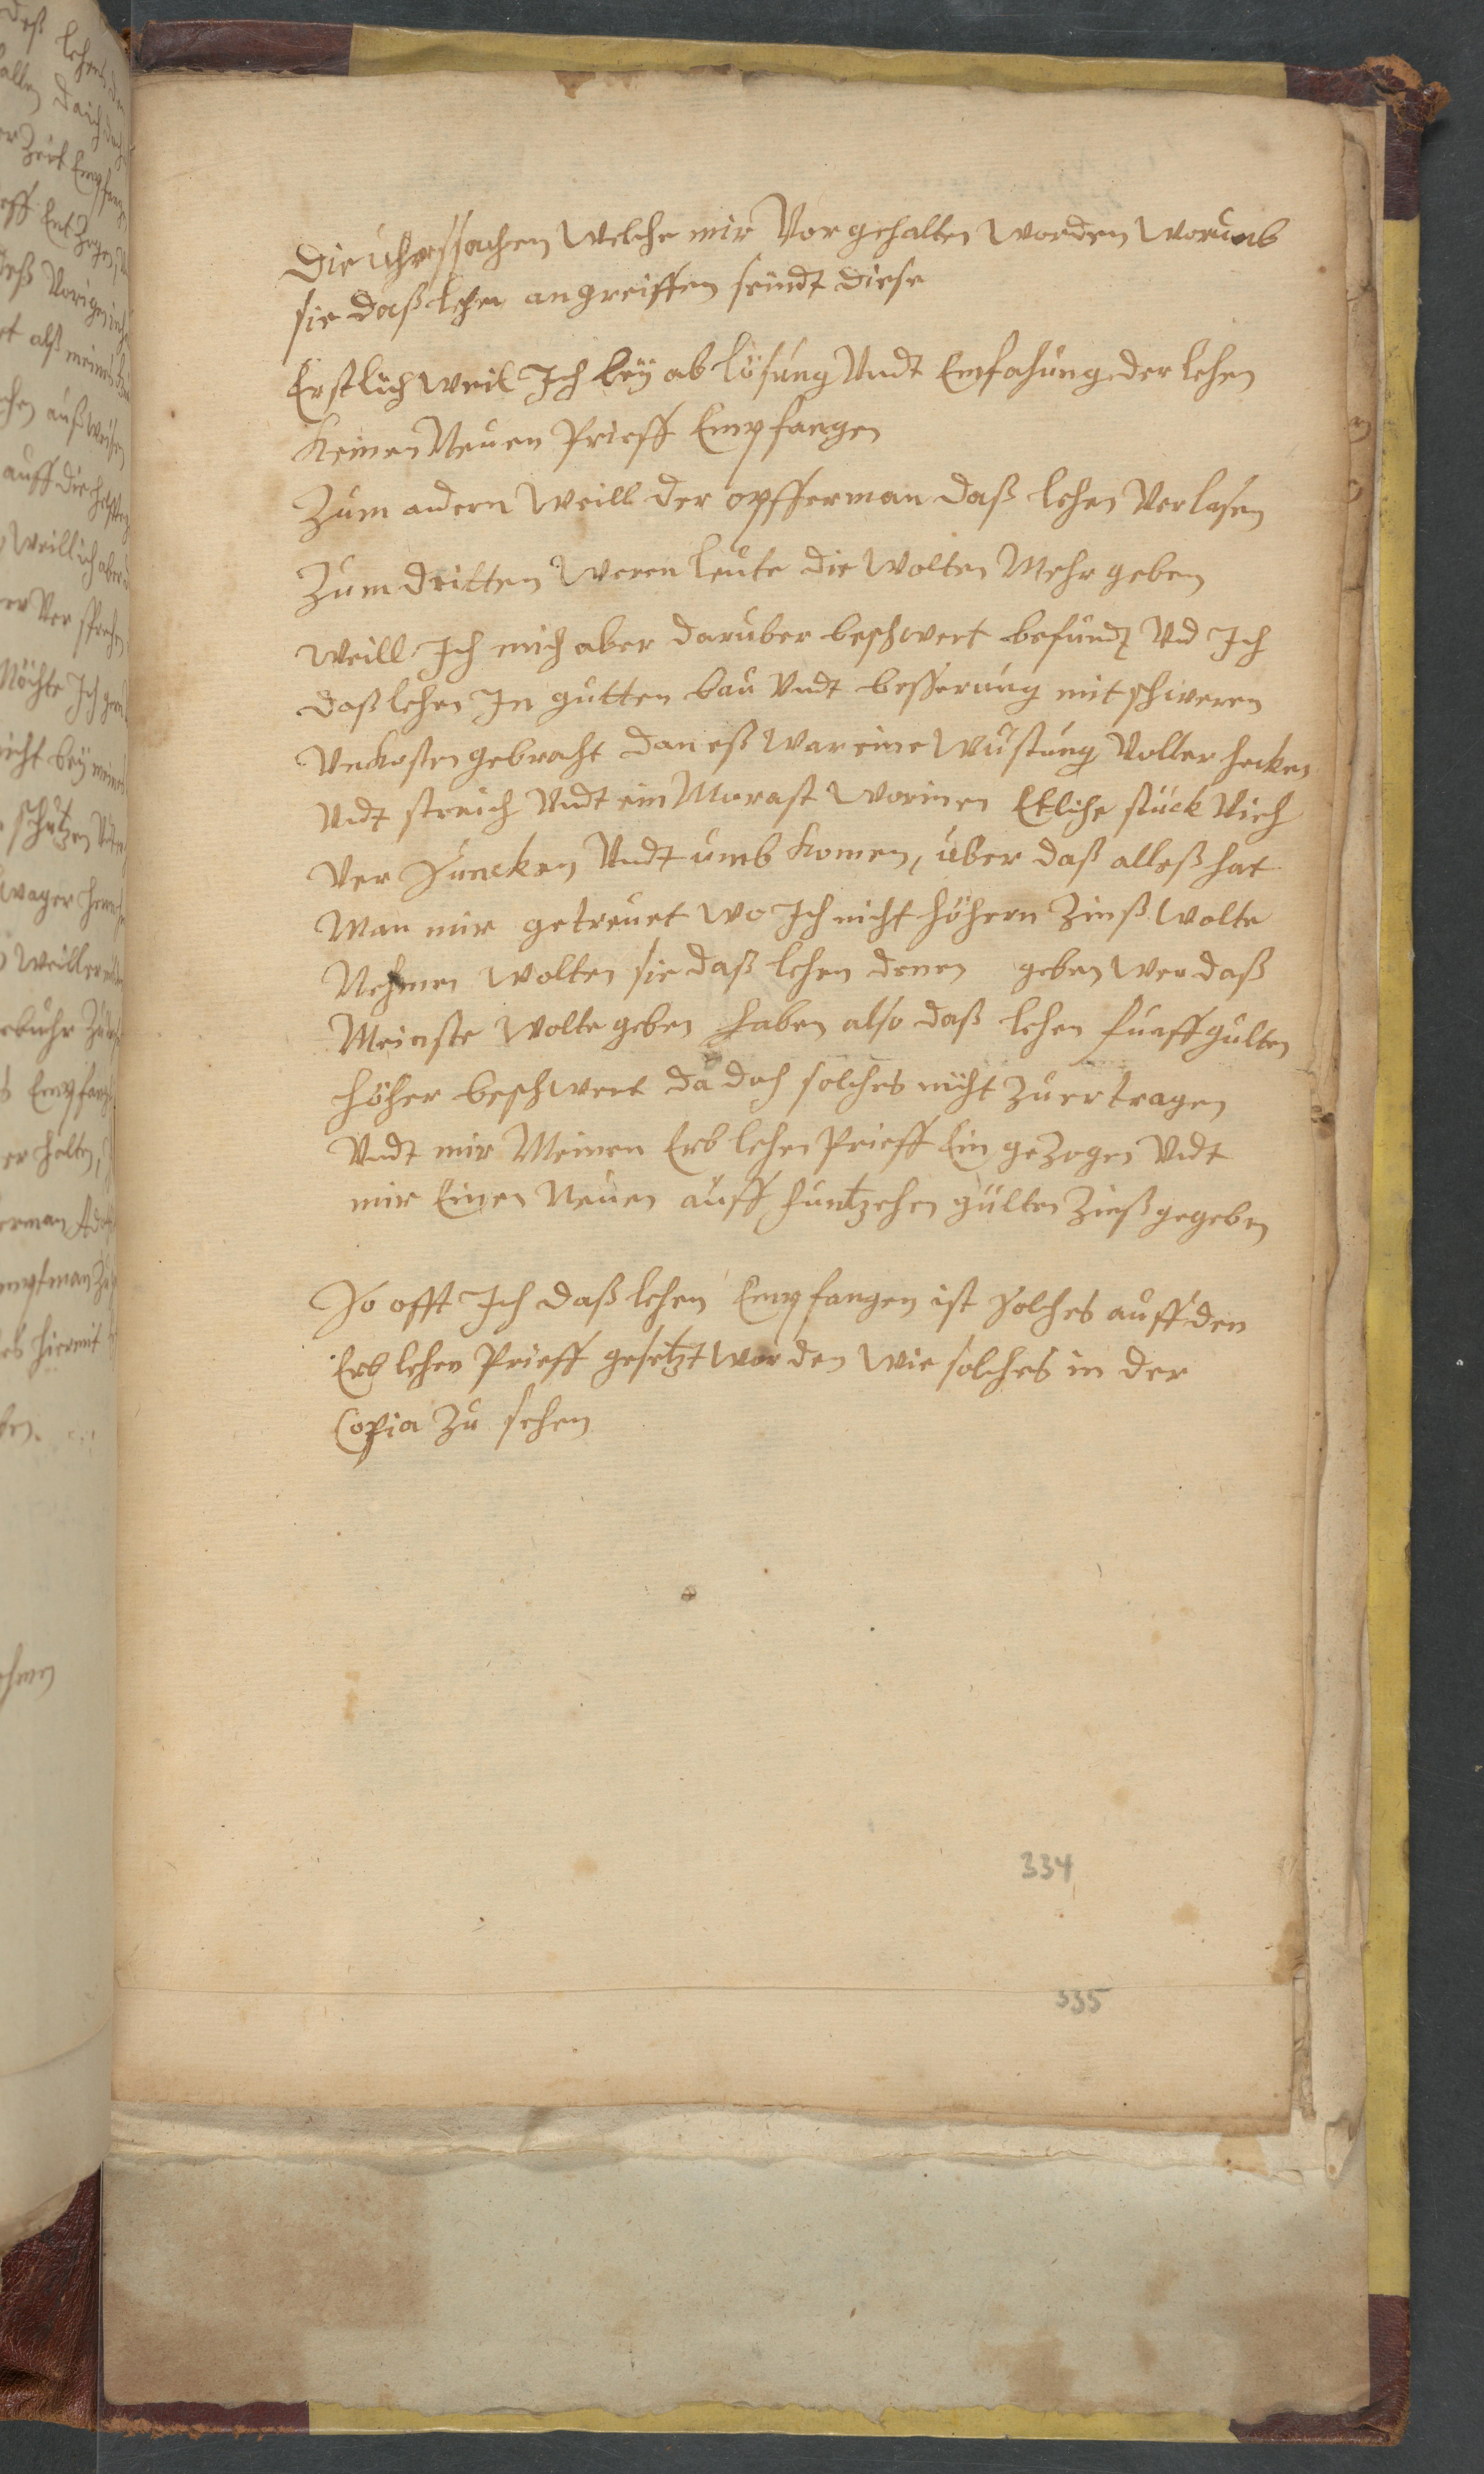 Die uhrssachen welche mir Vorgehalten worden worumb
sie daß lehen angreiffen seindt diese
Erstlich weil Ich beÿ ablösung Undt Emfahung der lehen
Keinen Neuen Prieff Empfangen
Zum andern weill der opfferman daß lehen Verlasen
Zum dritten weren leute die wolten Mehr geben
weill Ich mich aber daruber beschwert befundt Und Ich
daß lehen In gutten bau Undt besserung mit schweren
Unkosten gebracht dan eß war eine wustung Voller hecken
Undt streich Undt ein Morast worinen Etliche stuck Vieh
Versuncken Undt umb Komen, uber daß alleß hat
Man mir getreuet wo Ich nicht höhern Zinß wolte
Nehmen wolten sie daß lehen denen geben wer daß
Meinste wolte geben haben also daß lehen funff gulten
höher beschwert da doch solches nicht Zu ertragen
Undt mir Meinen Erb lehen Prieff Ein geZogen Undt
mir Einen Neuen auff funtzehen gülten Zinß gegeben
So offt Ich daß lehen Empfangen ist solches auff den
Erb lehen Prieff gesetzt worden wie solches in der
Copia Zu sehen
334
335